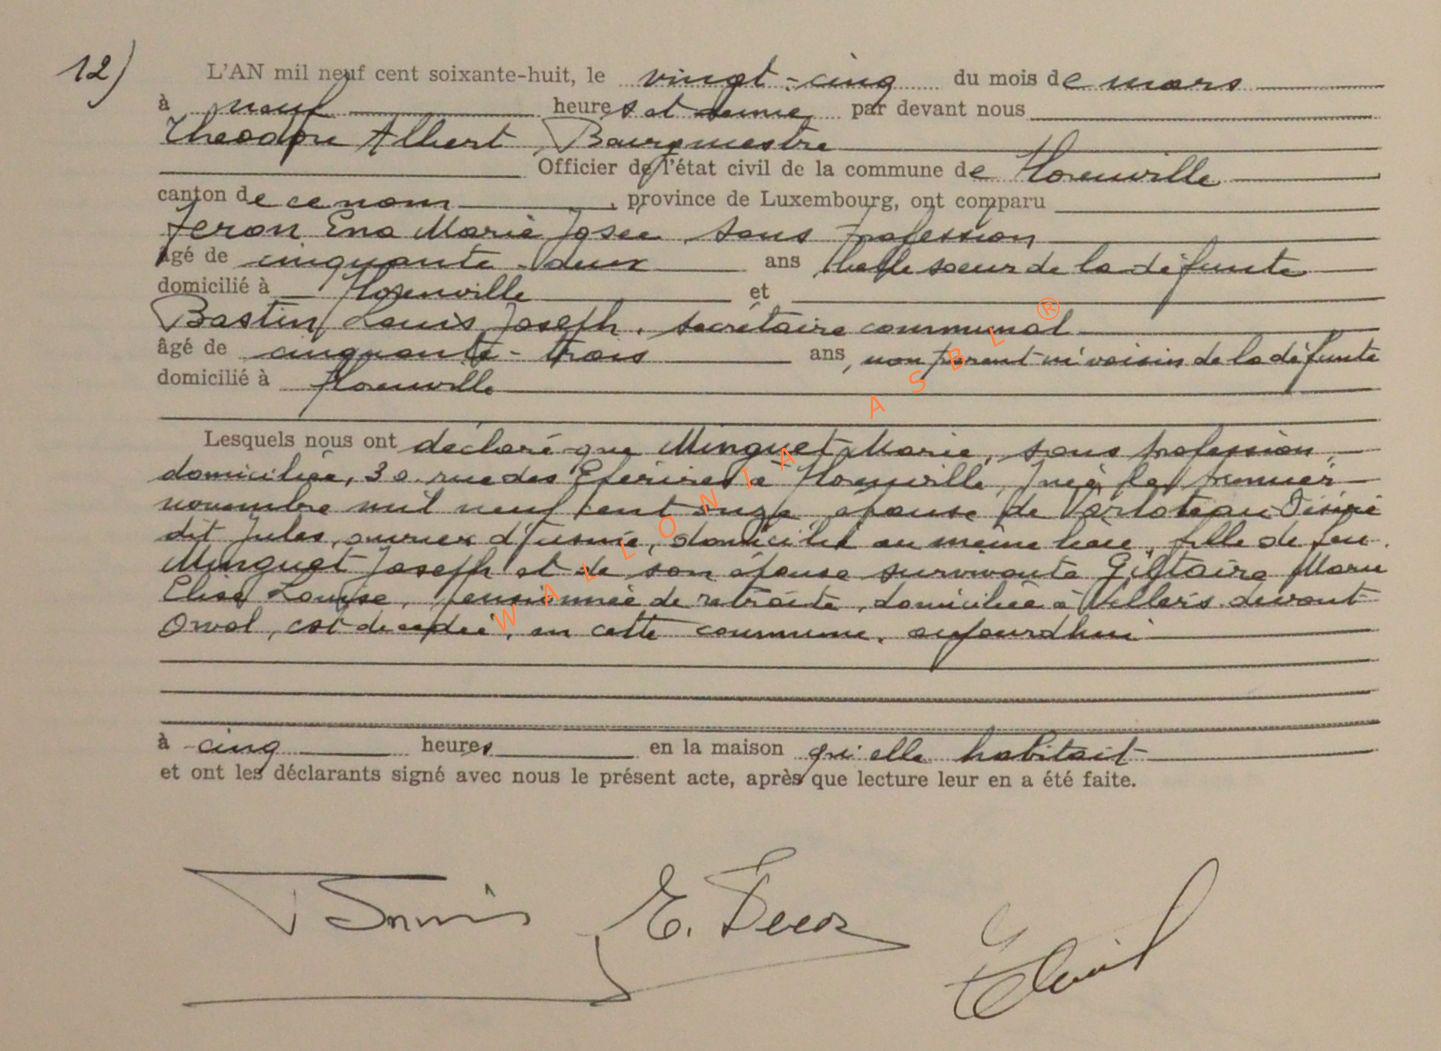 12) L'AN mil neuf cent soixante-huit, le vingt-cinq du mois de mars
à neuf heures et demie par devant nous
Théodore Albert, Bourgmestre
Officier de l'état civil de la commune de Florenville
canton de ce nom, province de Luxembourg, ont comparu
Feron Ena Marie Josée, sans profession
âgé de cinquante-deux ans belle soeur de la défunte
domicilié à Florenville et
Bastin Louis Joseph, secrétaire communal
âgé de cinquante-trois ans, non parent ni voisin de la défunte
domicilié à Florenville
Lesquels nous ont déclaré que Minguet Marie, sans profession,
domiciliée, 30 rue des à Florenville, née le premier
novembre mil neuf cent onze épouse de Désiré
dit Jules, ouvrier d'usine, domicilié au même lieu, fille de feu
Minguet Joseph et de son épouse survivante Gillaire Marie
Elise Louise, pensionnée de retraite, domiciliée à Villers devant
Orval, est décédée, en cette commune, aujourd'hui
à cinq heures en la maison qu'elle habitait
et ont les déclarants signé avec nous le présent acte, après que lecture leur en a été faite.
E. Feron
WALLONIA ASBL ®